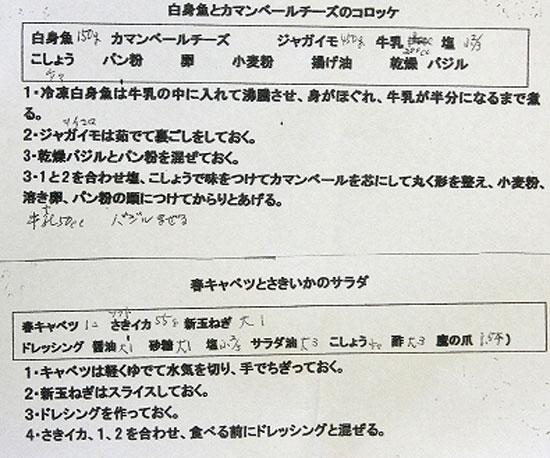 白身魚とカマンベールチーズのコロッケ
白身魚150g カマンベールチーズ ジャガイモ450g 牛乳 200cc 塩 小2/3
こしょう パン粉 卵 小麦粉 揚げ油 乾燥 バジル
1・冷凍白身魚は牛乳の中に入れて沸騰させ、身がほぐれ、牛乳が半分になるまで煮
る。
2・ジャガイモは茹でて裏ごしをしておく。
3・乾燥バジルとパン粉を混ぜておく。
3・1と2を合わせ塩、こしょうで味をつけてカマンベールを芯にして丸く形を整え、小麦粉、
溶き卵、パン粉の順につけてからりとあげる。
牛乳50cc バジルまぜる
春キャベツとさきいかのサラダ
春キャベツ さきイカ 55g 新玉ねぎ 大1
ドレッシング 醤油 大1 砂糖 大1 塩 小2/3 サラダ油 大3 こしょう 酢 大3 鷹の爪
1・キャベツは軽くゆでて水気を切り、手でちぎっておく。
2・新玉ねぎはスライスしておく。
3・ドレシングを作っておく。
4・さきイカ、1、2を合わせ、食べる前にドレッシングと混ぜる。